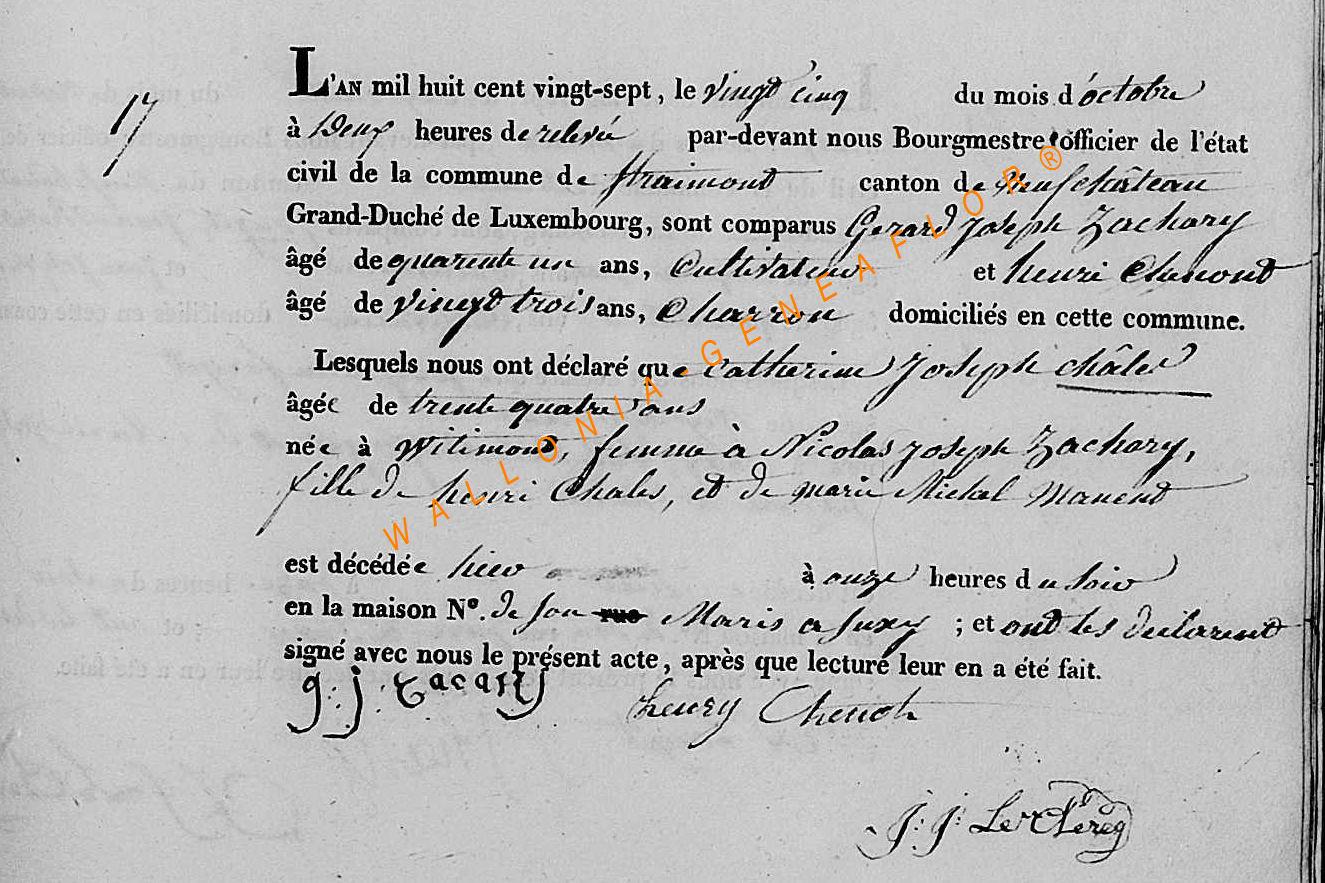 17
L'AN mil huit cent vingt-sept, le vingt cinq du mois d'octobre
à Deux heures de relevée par-devant nous Bourgmestre officier de l'état
civil de la commune de straimont canton de neufchâteau
Grand-Duché de Luxembourg, sont comparus Gerard Joseph Zachary
âgé de quarente un ans, Cultivateur et henri
âgé de vingt trois ans, Charron domiciliés en cette commune.
Lesquels nous ont déclaré que Catherine Joseph châles
âgée de trente quatre ans
née à Witimont, femme à Nicolas Joseph Zachary,
fille de henri Chales, et de marie Michel manent
est décédée hier à onze heures du soir
en la maison Nº. de son Maris a Suxy ; et ont les declarent
signé avec nous le présent acte, après que lecture leur en a été fait.
g: j: zacary henry Chenot
J: J: LeClercq
WALLONIA-GENEAFLOR®